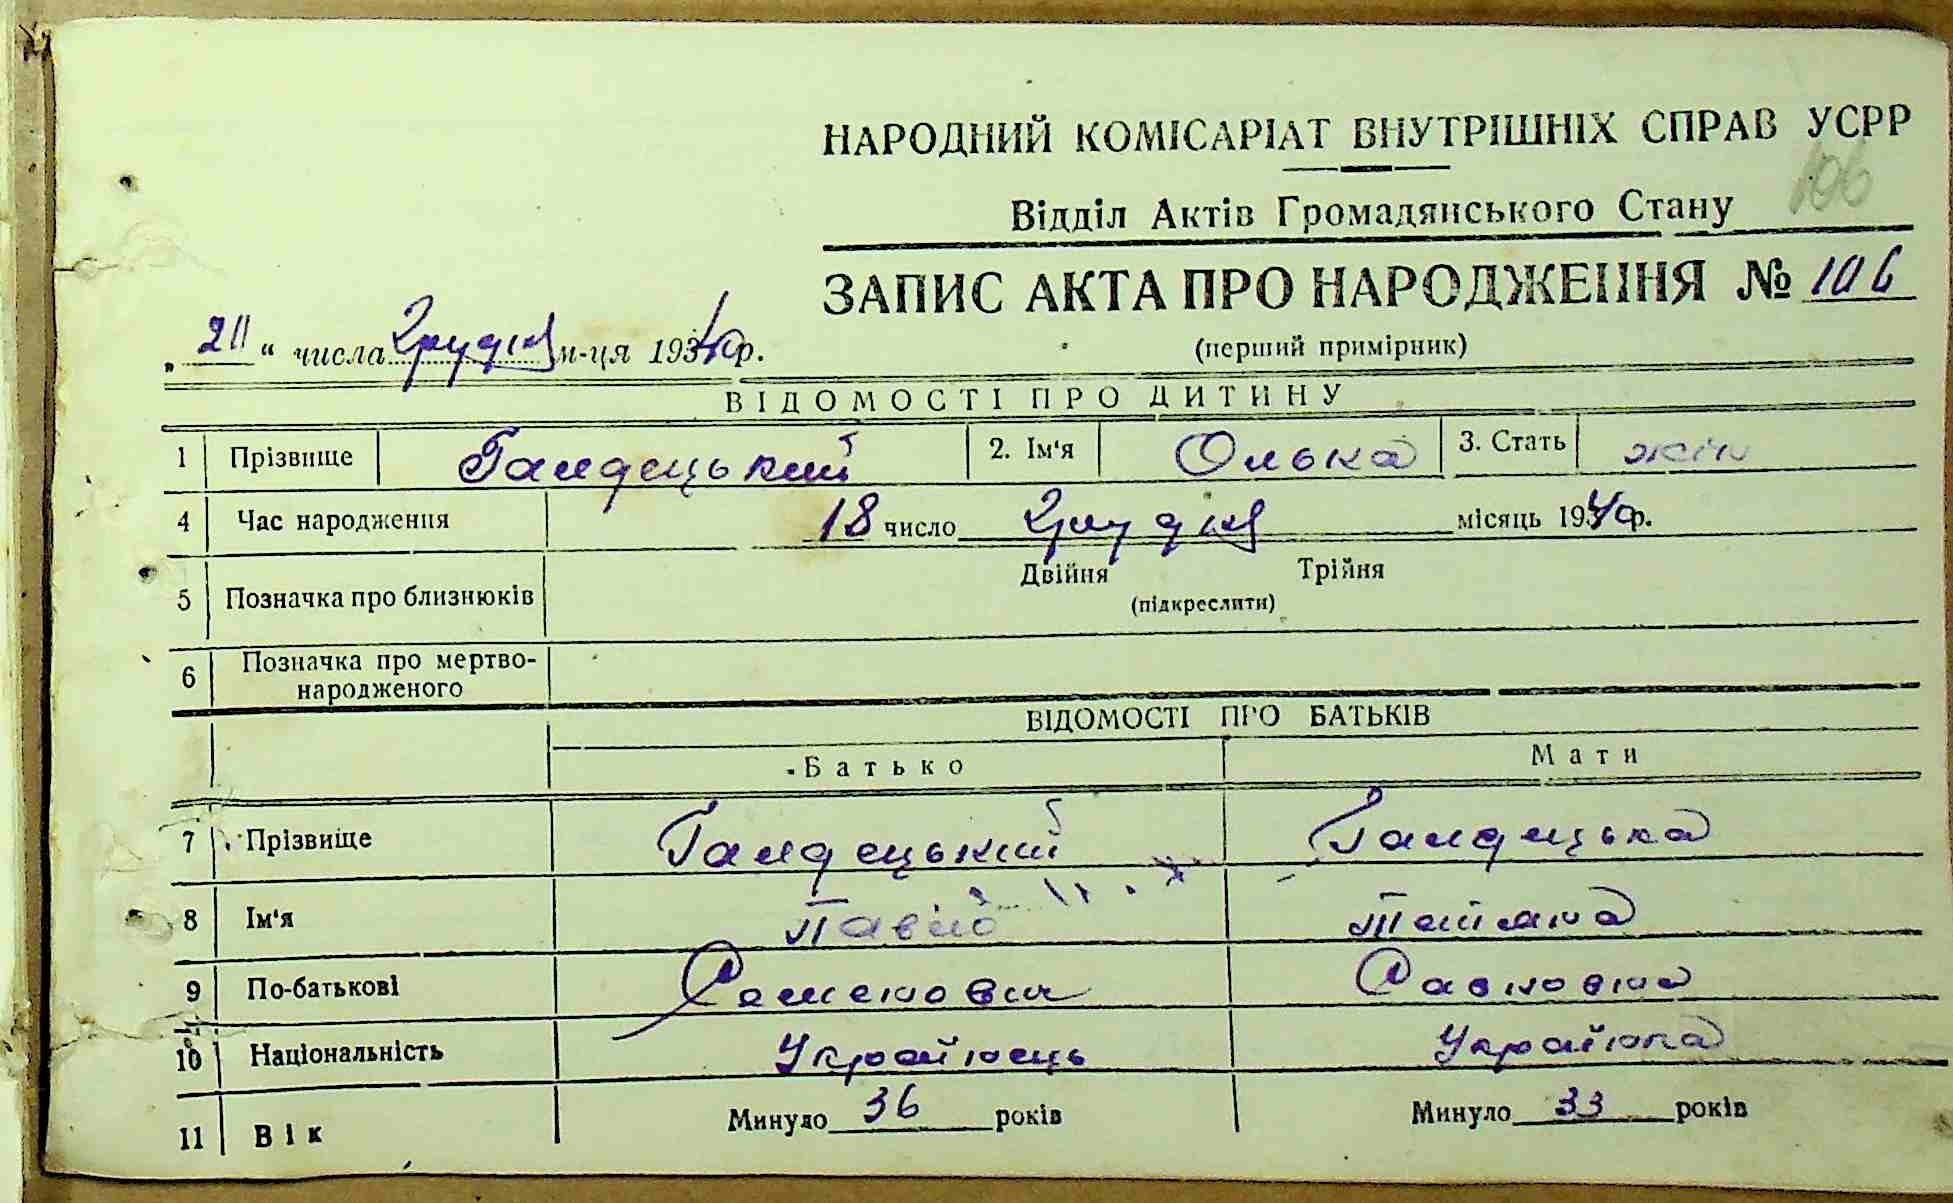 НАРОДНИЙ КОМІСАРІАТ ВНУТРІШНІХ СПРАВ УСРР
106
Відділ Актів Громадянського Стану
ЗАПИС АКТА ПРО НАРОДЖЕННЯ № 106
(перший примірник)
„ 20 “ числа Грудня м-ця 1940 р.
ВІДОМОСТІ ПРО ДИТИНУ
1 Прізвище Гандецький 2. Ім'я Олька 3. Стать жін
4 Час народження 18 число Грудня місяць 1940 р.
5 Позначка про близнюків Двійня Трійня
(підкреслити)
6 Позначка про мертво-
народженого
ВІДОМОСТІ ПРО БАТЬКІВ
Батько Мати
7 Прізвище Гандецький Гандецька
8 Ім'я Павло Тетяна
9 По-батькові Семенович Савловна
10 Національність Українець Українка
11 Вік Минуло 36 років Минуло 33 років